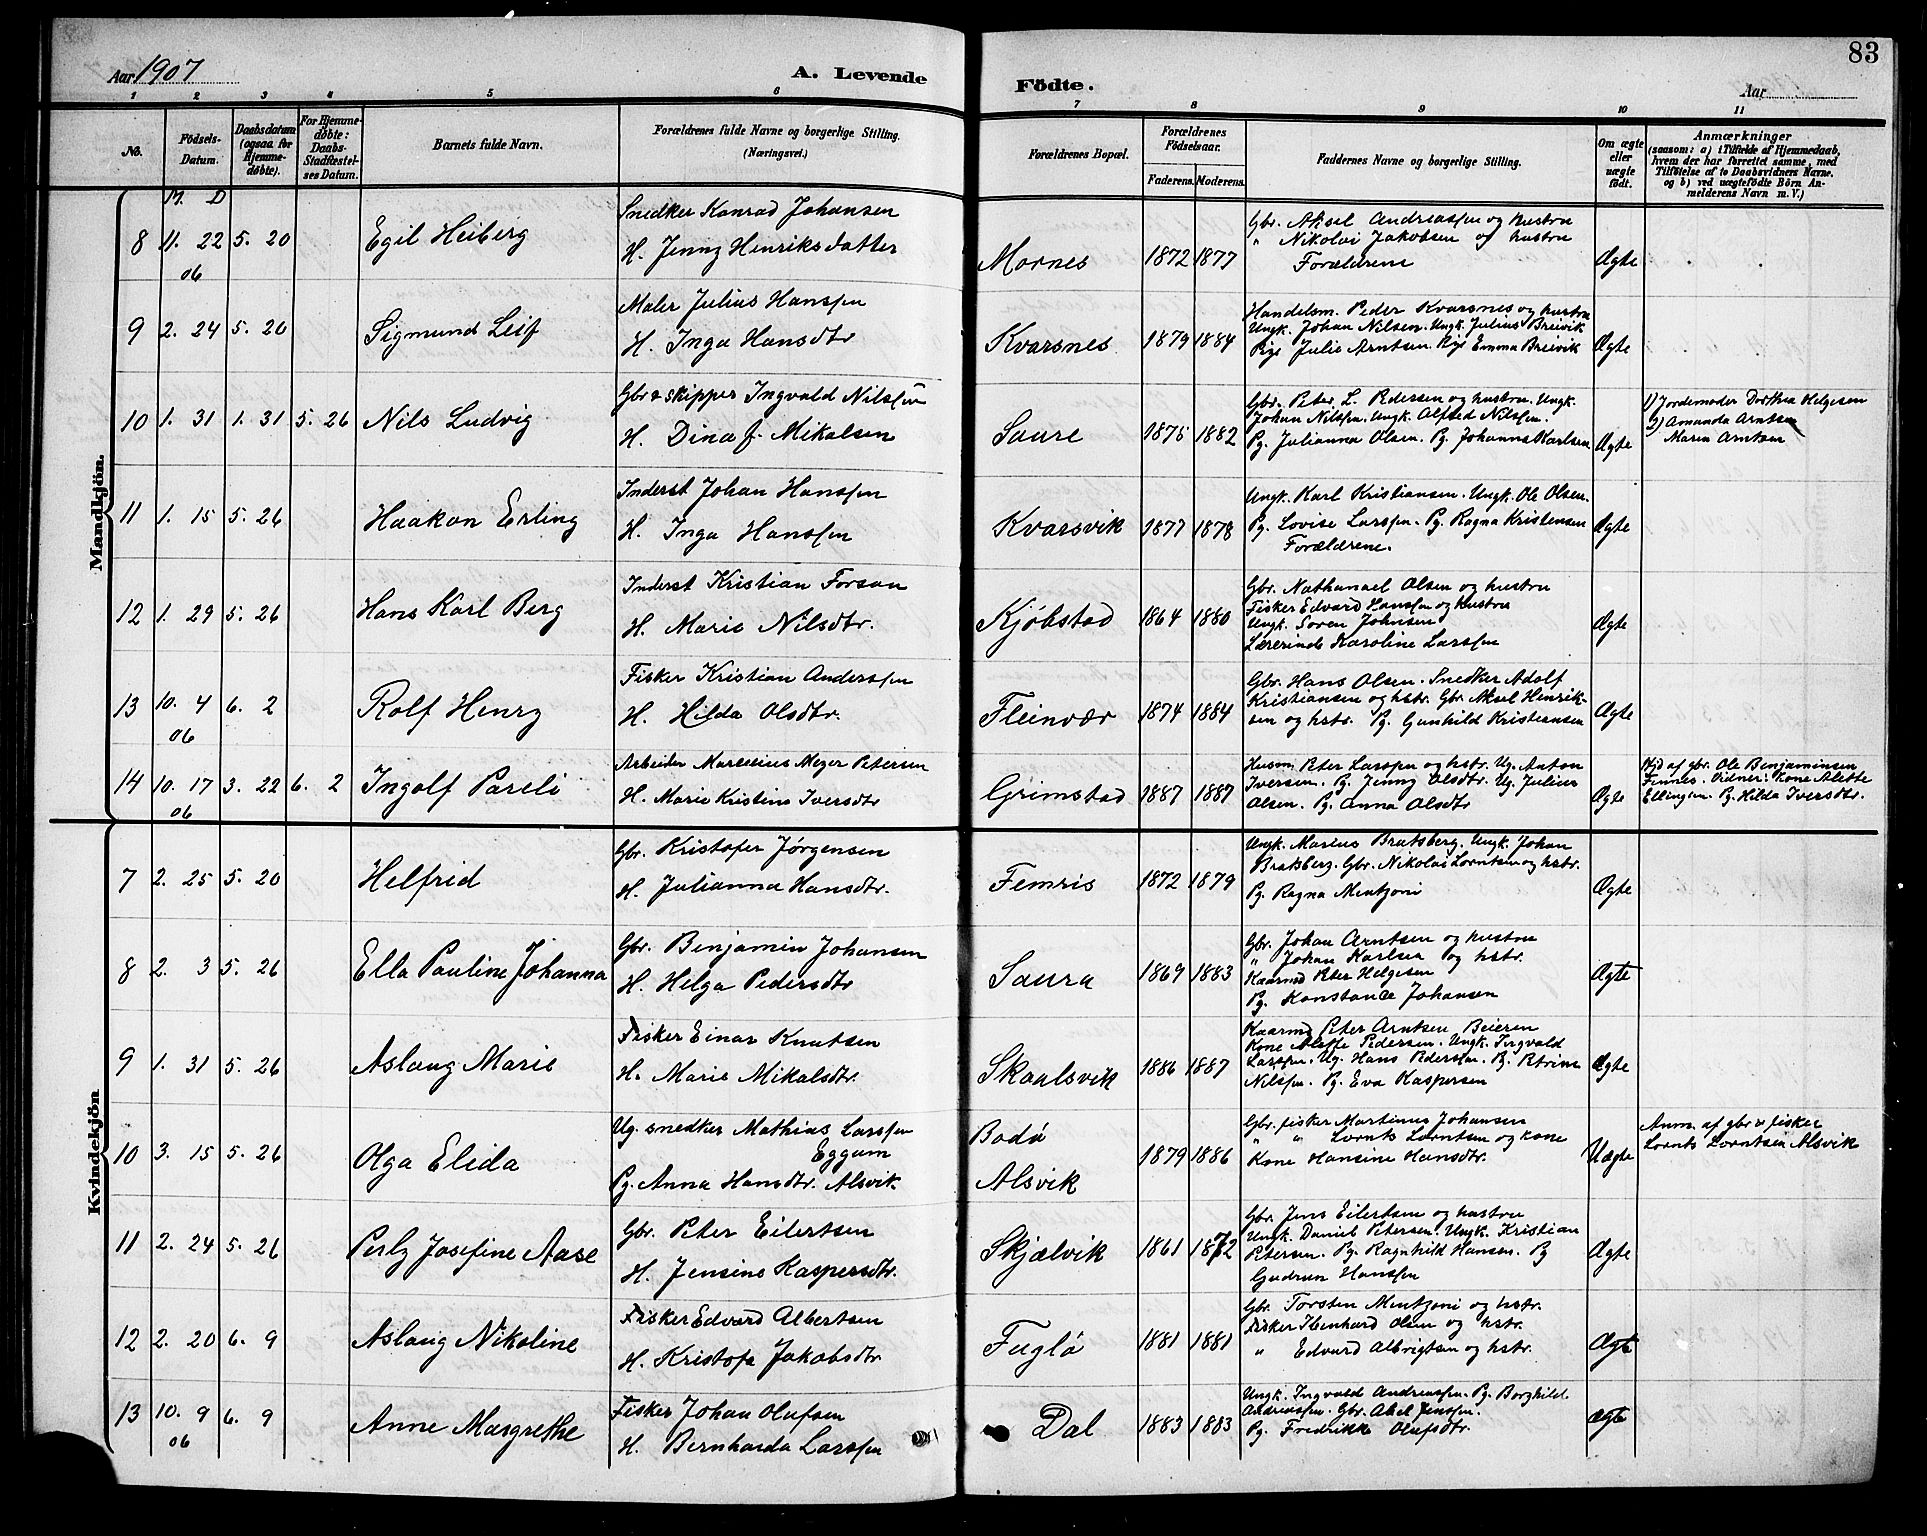 83
Aar 1907
A. Levende
Födte.
Aar
1 2 3 4 5 6 7 8 9 10 11
No.
Födsels-Datum.
Daabsdatum (ogsaa for Hjemme-döbte).
For Hjemme-döbte: Daabs-Stadfæstel-ses Datum.
Barnets fulde Navn.
Forældrenes fulde Navne og borgerlige Stilling.
(Næringsvei.)
Forældrenes Bopæl.
Forældrenes Födselsaar.
Faderens. Moderens.
Faddernes Navne og borgerlige Stilling.
Om ægte eller uægte födt.
Anmærkninger
(saasom: a) i Tilfælde af Hjemmedaab,
hvem der har forrettet samme, med
Tilföielse af to Daabsvidners Navne.
og b) ved uægtefödte Börn An-
melderens Navn m. V.)
Mandkjön.
M. D
8 11. 22 06 5. 20 Egil Heiberg
Snedker Konrad Johansen
H. Jenny Henriksdatter
Mornes 1872 1877
Gbr. Aksel Andreassen og hustru
" Nikolai Jakobsen og hustru
Forældrene
Ægte
9 2. 24 5. 20 Sigmund Leif
Maler Julius Hanssen
H. Inga Hansdtr
Kvarsnes 1879 1884
Handelsm. Peder Kvarsnes og hustru
Ungk. Johan Nilsen. Ungk. Julius Breivik
Pige Julie Arntsen. Pige Emma Breivik
Ægte
10 1. 31 1. 31 5. 26 Nils Ludvig
Gbr & skipper Ingvald Nilssen
H. Dina J. Mikalsen
Saure 1875 1882
Gbr. Peter L. Pedersen og hustru. Ungk.
Johan Nilssen. Ungk. Alfred Nilssen.
Pg. Julianna Olsen. Pg. Johanna Karlsen
Ægte
1) Jordemoder Dorthea Helgesen
2) Amanda Arntsen
Maren Arntsen
11 1. 15 5. 26 Haakon Erling
Inderst Johan Hanssen
H. Inga Hanssen
Kvarsvik 1877 1878
Ungk. Karl Kristiansen. Ungk. Ole Olsen.
Pg. Lovise Larssen. Pg. Ragna Kristensen
Forældrene.
Ægte
12 1. 29 5. 26 Hans Karl Berg
Inderst Kristian Forsan
H. Marie Nilsdtr.
Kjøbstad 1864 1880
Gbr. Nathanael Olsen og hustru
Fisker Edvard Hanssen og hustru
Ungk. Soren Johnsen
Lærerinde Karoline Larssen
Ægte
13 10. 4 06 6. 2 Rolf Henry
Fisker Kristian Anderssen
H. Hilda Olsdtr.
Fleinvær 1874 1884
Gbr. Hans Olsen. Snedker Adolf
Kristiansen og hstr. Gbr. Aksel Henrik-
sen og hstr. Pg. Gunhild Kristiansen
Ægte
14 10. 17 06 3. 22 6. 2 Ingolf Pareli
Arbeider Marcelius Meyer Petersen
H. Marie Kristine Iversdtr
Grimstad 1887 1887
Husm. Peter Larssen og hstr. Ug. Anton
Iversen. Pg. Jenny Olsdtr. Ug. Julius
Olsen. Pg. Anna Olsdtr
Ægte
Hjd af gbr. Ole Benjaminsen
Femris. Vidner: Kone Alette
Ellingsen. Pg. Hilda Iversdtr.
Kvindekjön
7 2. 25 5. 20 Helfrid
Gbr. Kristofer Jørgensen
H. Julianna Hansdtr.
Femris 1872 1879
Ungk. Marius Bratsberg. Ungk. Johan
Bratsberg. Gbr. Nikolai Lorntsen og hstr.
Pg. Ragna Mentzoni
Ægte
8 2. 3 5. 26 Ella Pauline Johanna
Gbr. Benjamin Johansen
H. Helga Pedersdtr
Saura 1869 1883
Gbr. Johan Arntsen og hustru
" Johan Karlsen og hstr.
Kaarmd Peter Helgesen
Pg. Konstance Johansen
Ægte
9 1. 31 5. 26 Aslaug Marie
Fisker Einar Knutsen
H. Marie Mikalsdtr.
Skaalsvik 1886 1887
Kaarmd Peter Arntsen Beieren
Kone Aleffe Pedersen. Ungk. Ingvald
Larssen. Ug. Hans Pederssen. Pg. Petrine
Nilssen. Pg. Eva Kaspersen
Ægte
10 3. 15 5. 26 Olga Elida
Ug. snedker Mathias Larssen
Eggum
Pg. Anna Hansdtr. Alsvik.
Bodø
Alsvik
1879 1886
Gbr. fisker Martinus Johansen
" " Lornts Lorntsen og kone
Kone Hansine Hansdtr.
Uægte
Anm. af gbr & fisker
Lornts Lorntsen Alsvik
11 2. 24 5. 26 Perly Josefine Aase
Gbr. Peter Eilertsen
H. Jensine Kaspersdtr.
Skjælvik 1861 1872
Gbr. Jens Eilertsen og hustru
Ungk. Daniel Petersen. Ungk. Kristian
Petersen. Pg. Ragnhild Hansen. Pg
Gudrun Hanssen
Ægte
12 2. 20 6. 9 Aslaug Nikoline
Fisker Edvard Albertsen
H. Kristofa Jakobsdtr.
Fuglø 1881 1881
Gbr. Torsten Mentzoni og hstr.
Fisker Ibenhard Olsen og hstr.
" Edvard Albrigtsen og hstr.
Ægte
13 10. 9 06 6. 9 Anne Margrethe
Fisker Johan Olufsen
H. Bernharda Larssen
Dal 1883 1883
Ungk. Ingvald Andreassen. Pg. Borghild
Andreassen. Gbr. Aksel Jenssen.
Pg. Fredrikke Olufsdtr.
Ægte